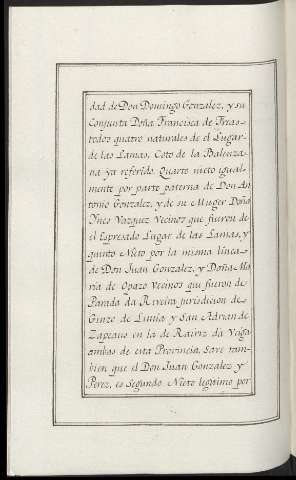 dad de Don Domingo Gonzalez, y su
Conjunta Doña Francisca de Frras-
todos quatro naturales de el Lugar-
de las Lamas, Coto de la Baleuza-
na ya referido. Quarto nieto igual-
mente por parte paterna de Don An-
tonio Gonzalez, y de su Muger Doña
Ynes Vazquez Vecinos que fueron de-
el Espresado Lugar de las Lamas, y
quinto Nieto por la misma linea-
de Don Juan Gonzalez, y Doña Ma-
ria de Opazo Vecinos que fueron de-
Parada da Riveira jurisdicion de-
Ginzo de Limia y San Adrian de
Zapeaus en la de Rairiz da Veiga
ambas de esta Provincia. Sare tam-
bien que el Don Juan Gonzalez y
Perez, es Segundo Nieto legitimo por